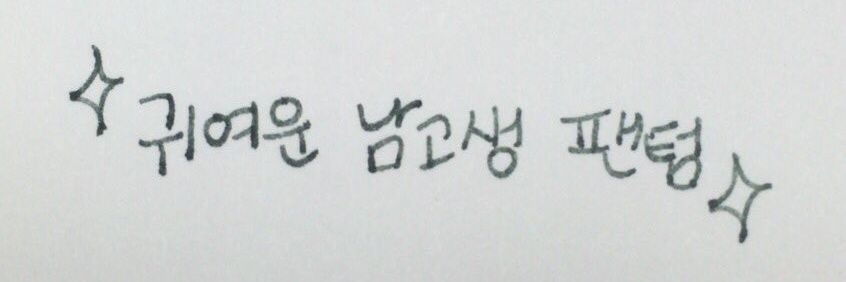 귀여운 남고생 팬텀